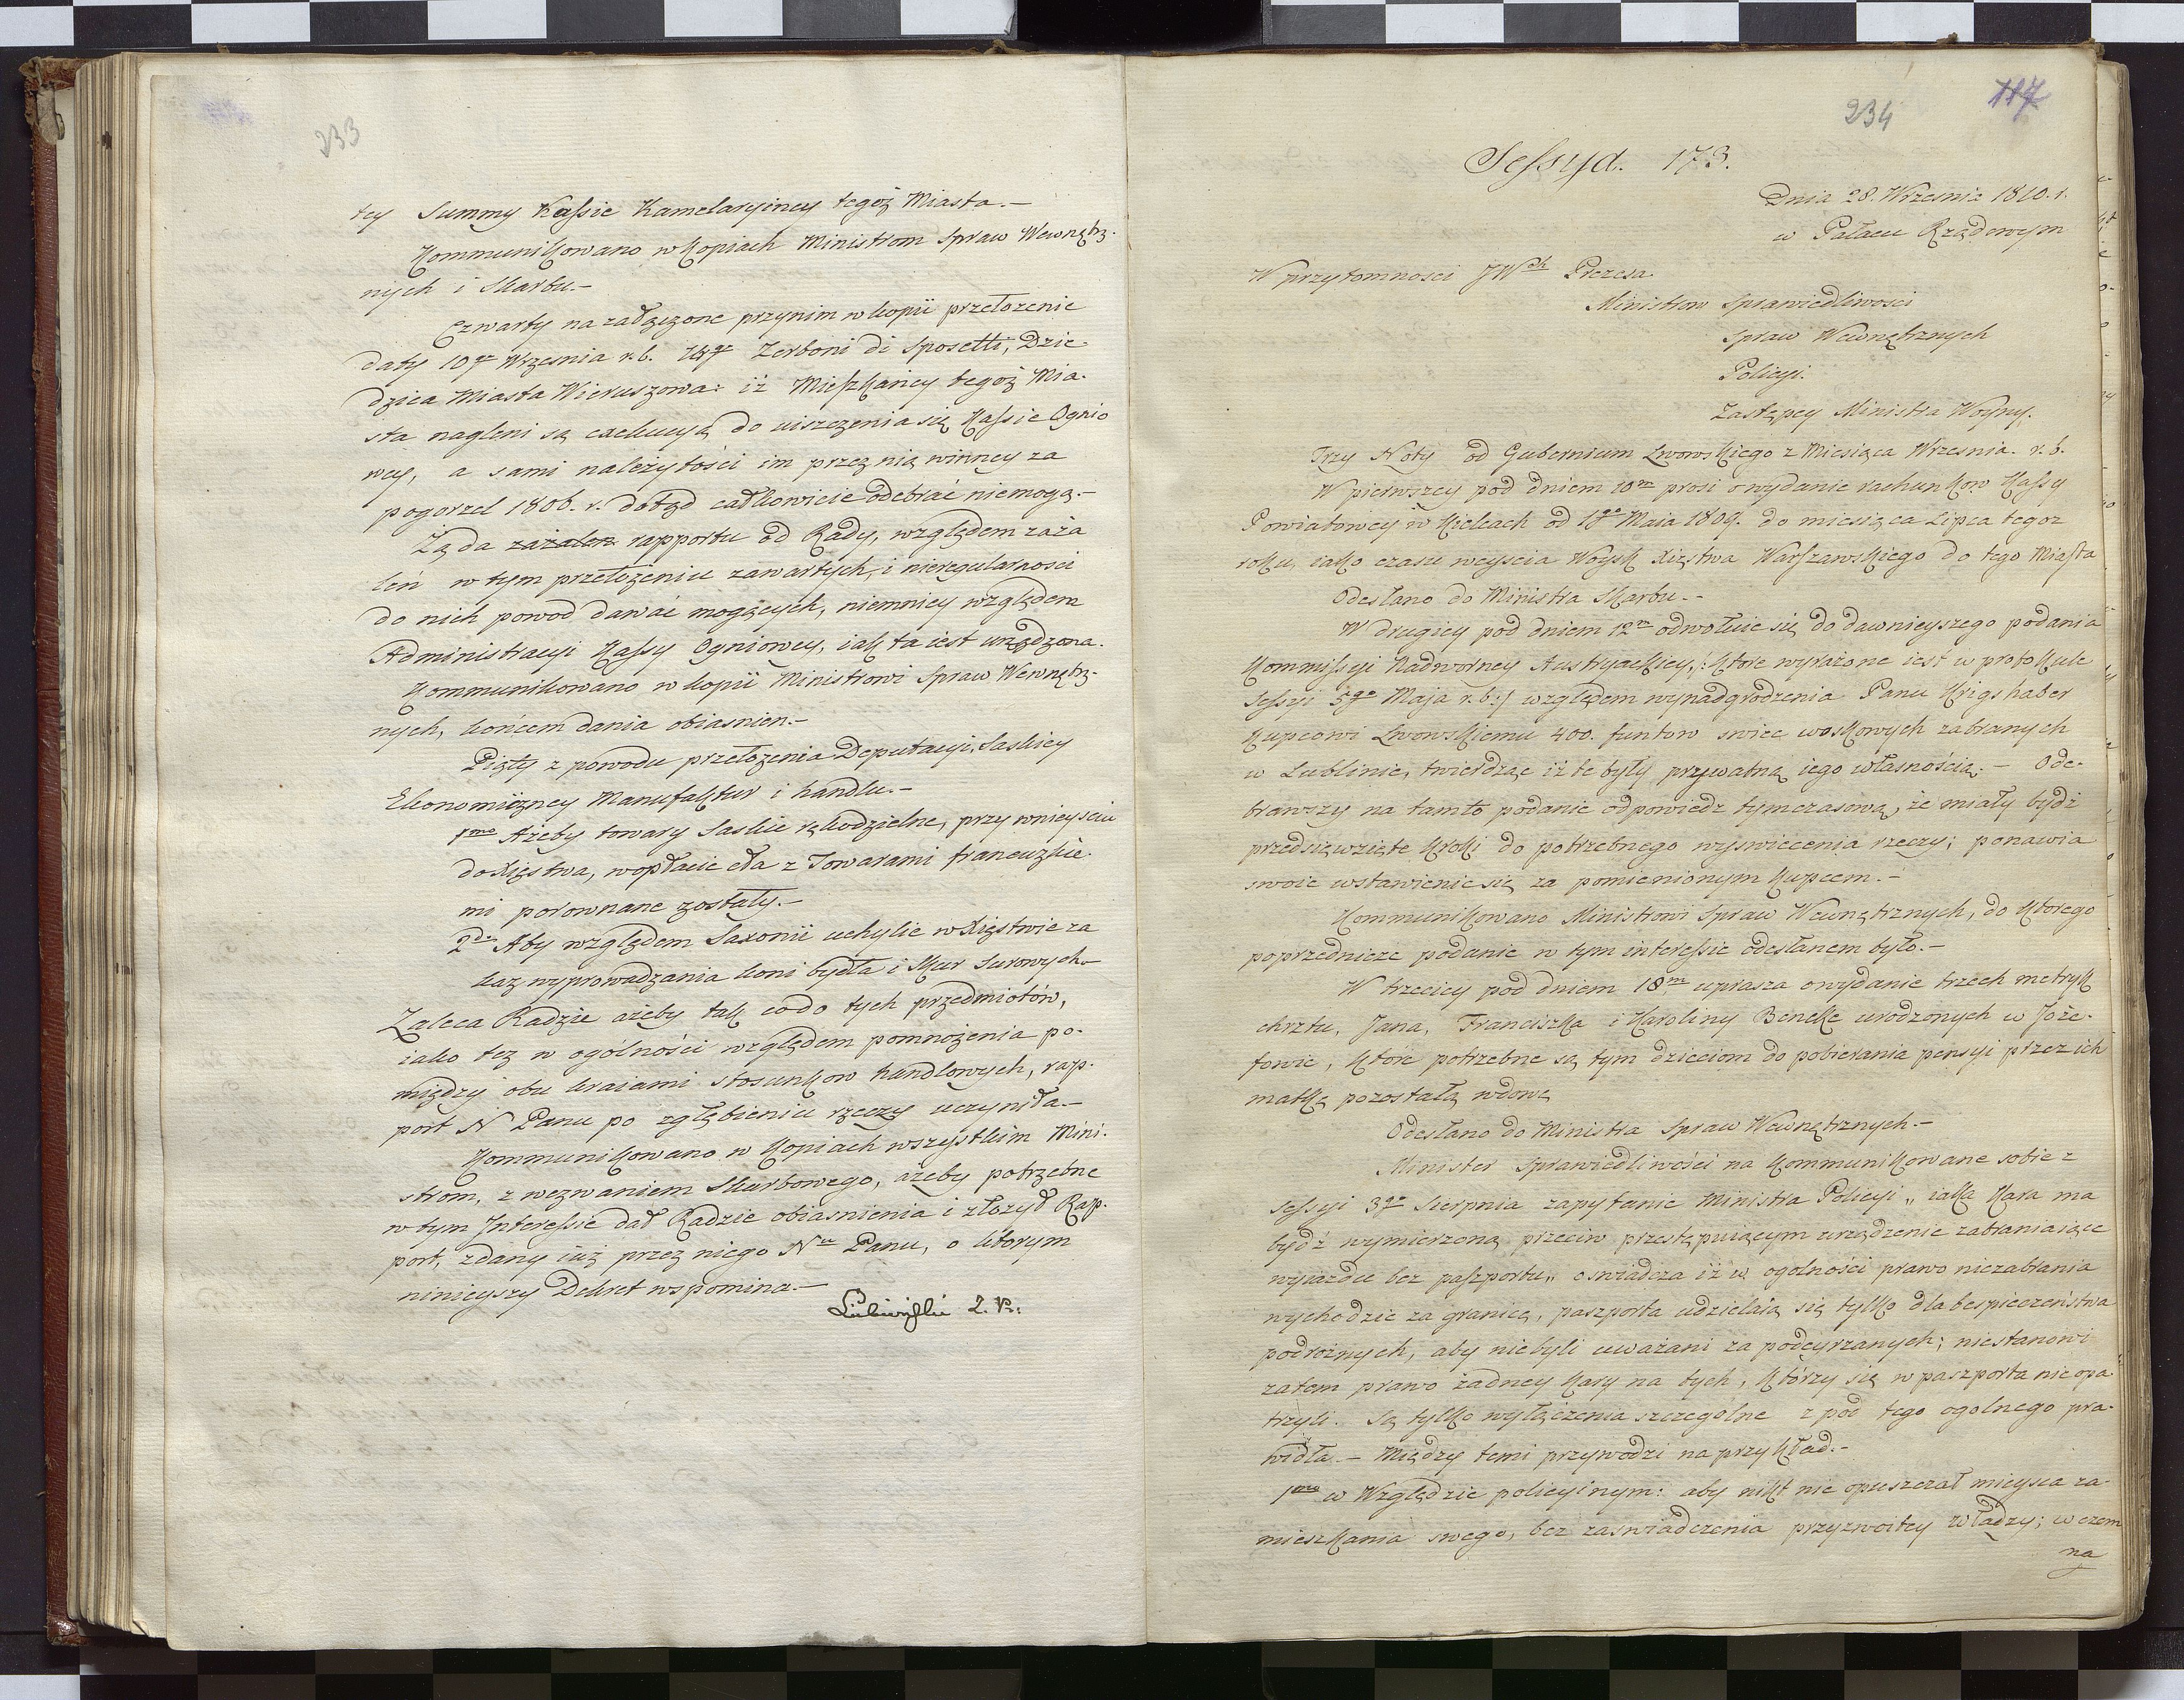 233
tey Summy Kassie Kamelaryiney tegoż Miasta.—
Kommunikowano w kopiach Ministrom Spraw Wewnętrz-
nych i Skarbu.—
Czwarty na załączone przynim w kopii przełożenie
daty 10go Września r. b. Zerboni di Sposetti, Dzie-
dzica Miasta Wieruszowa: iż Mieszkańcy tegoż Mia-
sta nagleni są exekucyą do uiszczenia się Kassie Ognio
wey, a sami należytości im przez nią winney za
pogorzel 1806. r. dotąd całkowicie odebrać niemogą.—
Żąda zażaleń rapportu od Rady, względem zaża
leń w tym przełożeniu zawartych, i nieregularności
do nich powod dawać mogących, niemniey względem
Administracyi Kassy Ogniowey, iak ta iest urządzona.
Kommunikowano w kopii Ministrowi Spraw Wewnętrz-
nych, końcem dania obiasnien.—
Piąty z powodu przełożenia Deputacyi Saskiey
Ekonomiczney Manufaktur i handlu.—
1mo Ażeby towary Saskie rękodzielne, przy wnieyściu
do Xięstwa, w opłacie cła z Towarami francuzkie-
mi porownane zostały.—
2do Aby względem Saxonii uchylic w Xięstwie za
kaz wyprowadzania koni bydła i Skur Surowych.
Zaleca Radzie ażeby tak co do tych przedmiotów,
iako też w ogólności względem pomnożenia po-
między obu kraiami stosunkow handlowych, rap-
port N Panu po zgłębieniu rzeczy uczyniła.—
Kommunikowano w kopiach wszystkim Mini-
strom, z wezwaniem Skarbowego, ażeby potrzebne
w tym Interessie dał Radzie obiasnienia i złożył Rap-
port, zdany iuż przez niego Nu Panu, o którym
ninieyszy Dekret wspomina.—
234
117
Sessya. 173.
Dnia 28. Września 1810. r.
w Pałacu Rządowym
W przytomnosci JWch Prezesa
Ministrow Sprawiedliwości
Spraw Wewnętrznych
Policyi.
Zastępcy Ministra Woyny.
Trzy Noty od Gubernium Lwowskiego z Miesiąca Września. r. b.
W pierwszey pod dniem 10m prosi o wydanie rachunkow Kassy
Powiatowey w Kielcach od 1go Maia 1809. do miesiąca Lipca tegoz
roku, iako czasu weyscia Woysk Xięstwa Warszawskiego do tego Miasta
Odesłano do Ministra Skarbu.—
W drugiey pod dniem 12m odwołuie się do dawnieyszego podania
Kommissyi Nadworney Austryackiey, /: ktore wyrażone iest w protokule
Sessyi 5go Maja r. b :/ względem wynadgrodzenia Panu Krigshaber
Kupcowi Lwowskiemu 400. funtow swiec woskowych zabranych
w Lublinie, twierdząc iż te były prywatną iego własnością.— Ode-
brawszy na tamto podanie odpowiedz tymczasową, że miały bydź
przedsięwzięte kroki do potrzebnego wyswiecenia rzeczy; ponawia
swoie wstawienie się za pomienionym Kupcem.—
Kommunikowano Ministrowi Spraw Wewnętrznych, do którego
poprzednicze podanie w tym interessie odesłanem było.—
W trzeciey pod dniem 18m uprasza o wydanie trzech metryk
chrztu, Jana, Franciszka i Karoliny Beneke urodzonych w Joze-
fowie, które potrzebne są tym dzieciom do pobierania pensyi przez ich
matkę pozostałą wdowę
Odesłano do Ministra Spraw Wewnętrznych.—
Minister Sprawiedliwości na Kommunikowane sobie z
Sessyi 3go Sierpnia zapytanie Ministra Policyi „ iaka Kara ma
bydź wymierzoną przeciw przestępuiącym urządzenie zabraniaiące
wyiazdu bez paszportu „ oswiadcza iż w ogolności prawo niezabrania
wychodzic za granicę, paszporta udzielaią się tylko dla bespieczeństwa
podrożnych, aby niebyli uważani za podeyrzanych; niestanowi
zatem prawo żadney kary na tych, którzy się w paszporta nie opa
trzyli. Są tylko wyłączenia szczegolne z pod tego ogolnego pra-
widła.— Między temi przywodzi na przykład.—
1mo w Względzie policyinym: aby nikt nie opuszczał mieysca za
mieszkania swego, bez zaswiadczenia przyzwoitey władzy; w czem
na